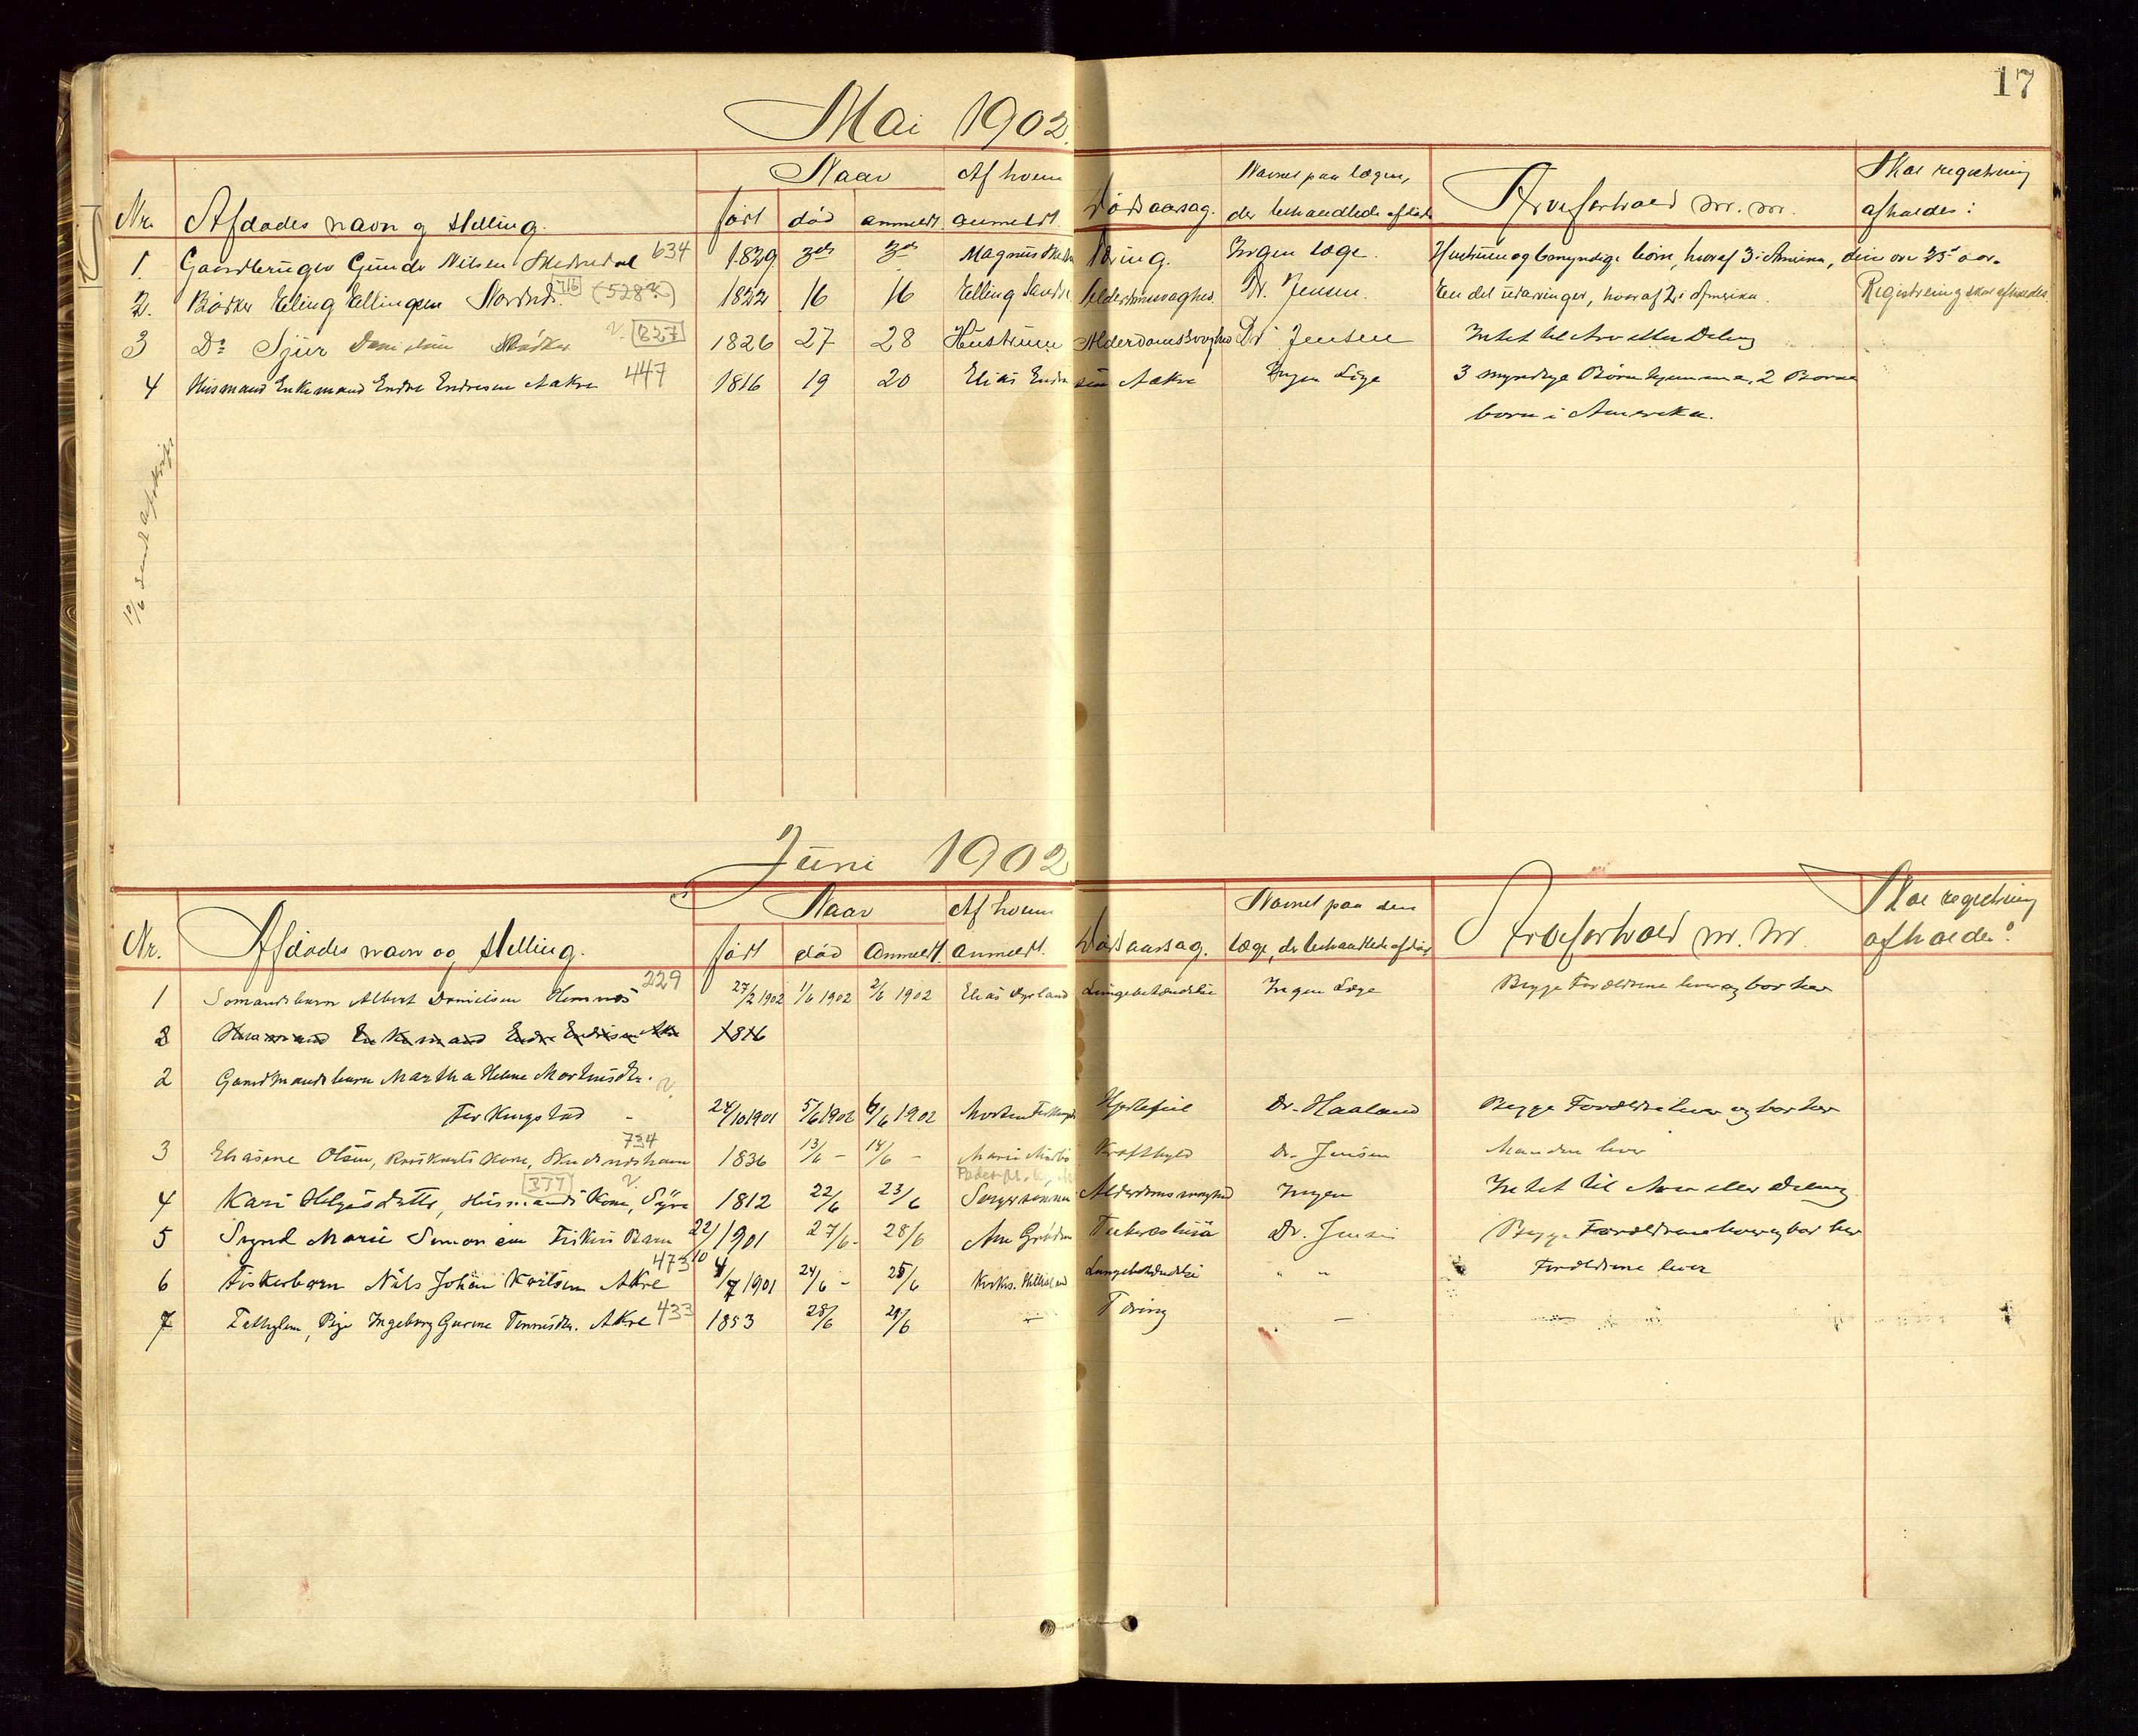 17
Mai 1902.
Nr. Afdødes navn og stilling. Naar født død anmeldt. Af hvem anmeldt. Dødsaarsag. Navnet paa lægen, der behandlede afdøde Arveforhold m. m. Skal registrering afholdes:
1. Gaardbruger Gunder Nilsen 634 1829 3die 3die Magnus Tæring. Ingen læge. Hustru og 6 myndige børn, hvoraf 3 i Amerika, den over 25 aar.
2. Bødker Elling Ellingsen 716 (528?) 1822 16 16 Elling Alderdomssvaghed. Dr. Jensen. En del udarvinger, hvoraf 2 i Amerika. Registrering skal afholdes.
3 Do Sjur Danielsen v. 827 1826 27 28 Hustruen Alderdomssvaghed Dr Jensen Intet til Arv eller Deling
4 Husmand Enkemand Endre Endresen Aakre 447 1816 19 20 Elias Endresen Aakre Ingen Læge 3 myndige Børn hjemme, 2 Barne
børn i Amerika.
10/6 sendt afskrift
Juni 1902
Nr. Afdødes navn og stilling. Naar født død Anmeldt. Af hvem anmeldt. Dødsaarsag. Navnet paa den læge, der behandlede afdøde Arveforhold m. m. Skal registrering afholdes?
1 Sømandsbarn Albert Danielsen Hemnes 229 27/2 1902 1/6 1902 2/6 1902 Elias Lungebetændelse Ingen Læge Begge Forældrene lever og bor her
2 Husmand Enkemand Endre Endresen Akre 1816
2 Gaardmandsbarn Martha Helene Mortensdtr.
Ferkingstad v. 24/10 1901 5/6 1902 6/6 1902 Morten Ferkingstad Dr. Haaland Begge Forældre lever og bor her
3 Eliasine Olsen, Kone, Skudeneshavn 734 1836 13/6 – 14/6 – Marie Kræftbyld Dr. Jensen Manden lever
4 Kari Helgesdatter, Husmands Kone, Syre 337 v. 1812 22/6 23/6 Alderdomssvaghed Ingen Intet til Arv eller Deling
5 Marie Simonsen Fiskers Barn 22/10 1901 27/6 – 28/6 Tuberkulose Dr. Jensen Begge Forældrene lever og bor her
6 Fiskerbarn Nils Johan Karlsen Akre 473 4/7 1901 24/6 – 25/6 Kirkes. Lungebetændelse " " Forældrene lever
7 Fattiglem, Pige Ingeborg Gurine Tønnesdtr. Akre 433 1853 28/6 29/6 – Tæring – –